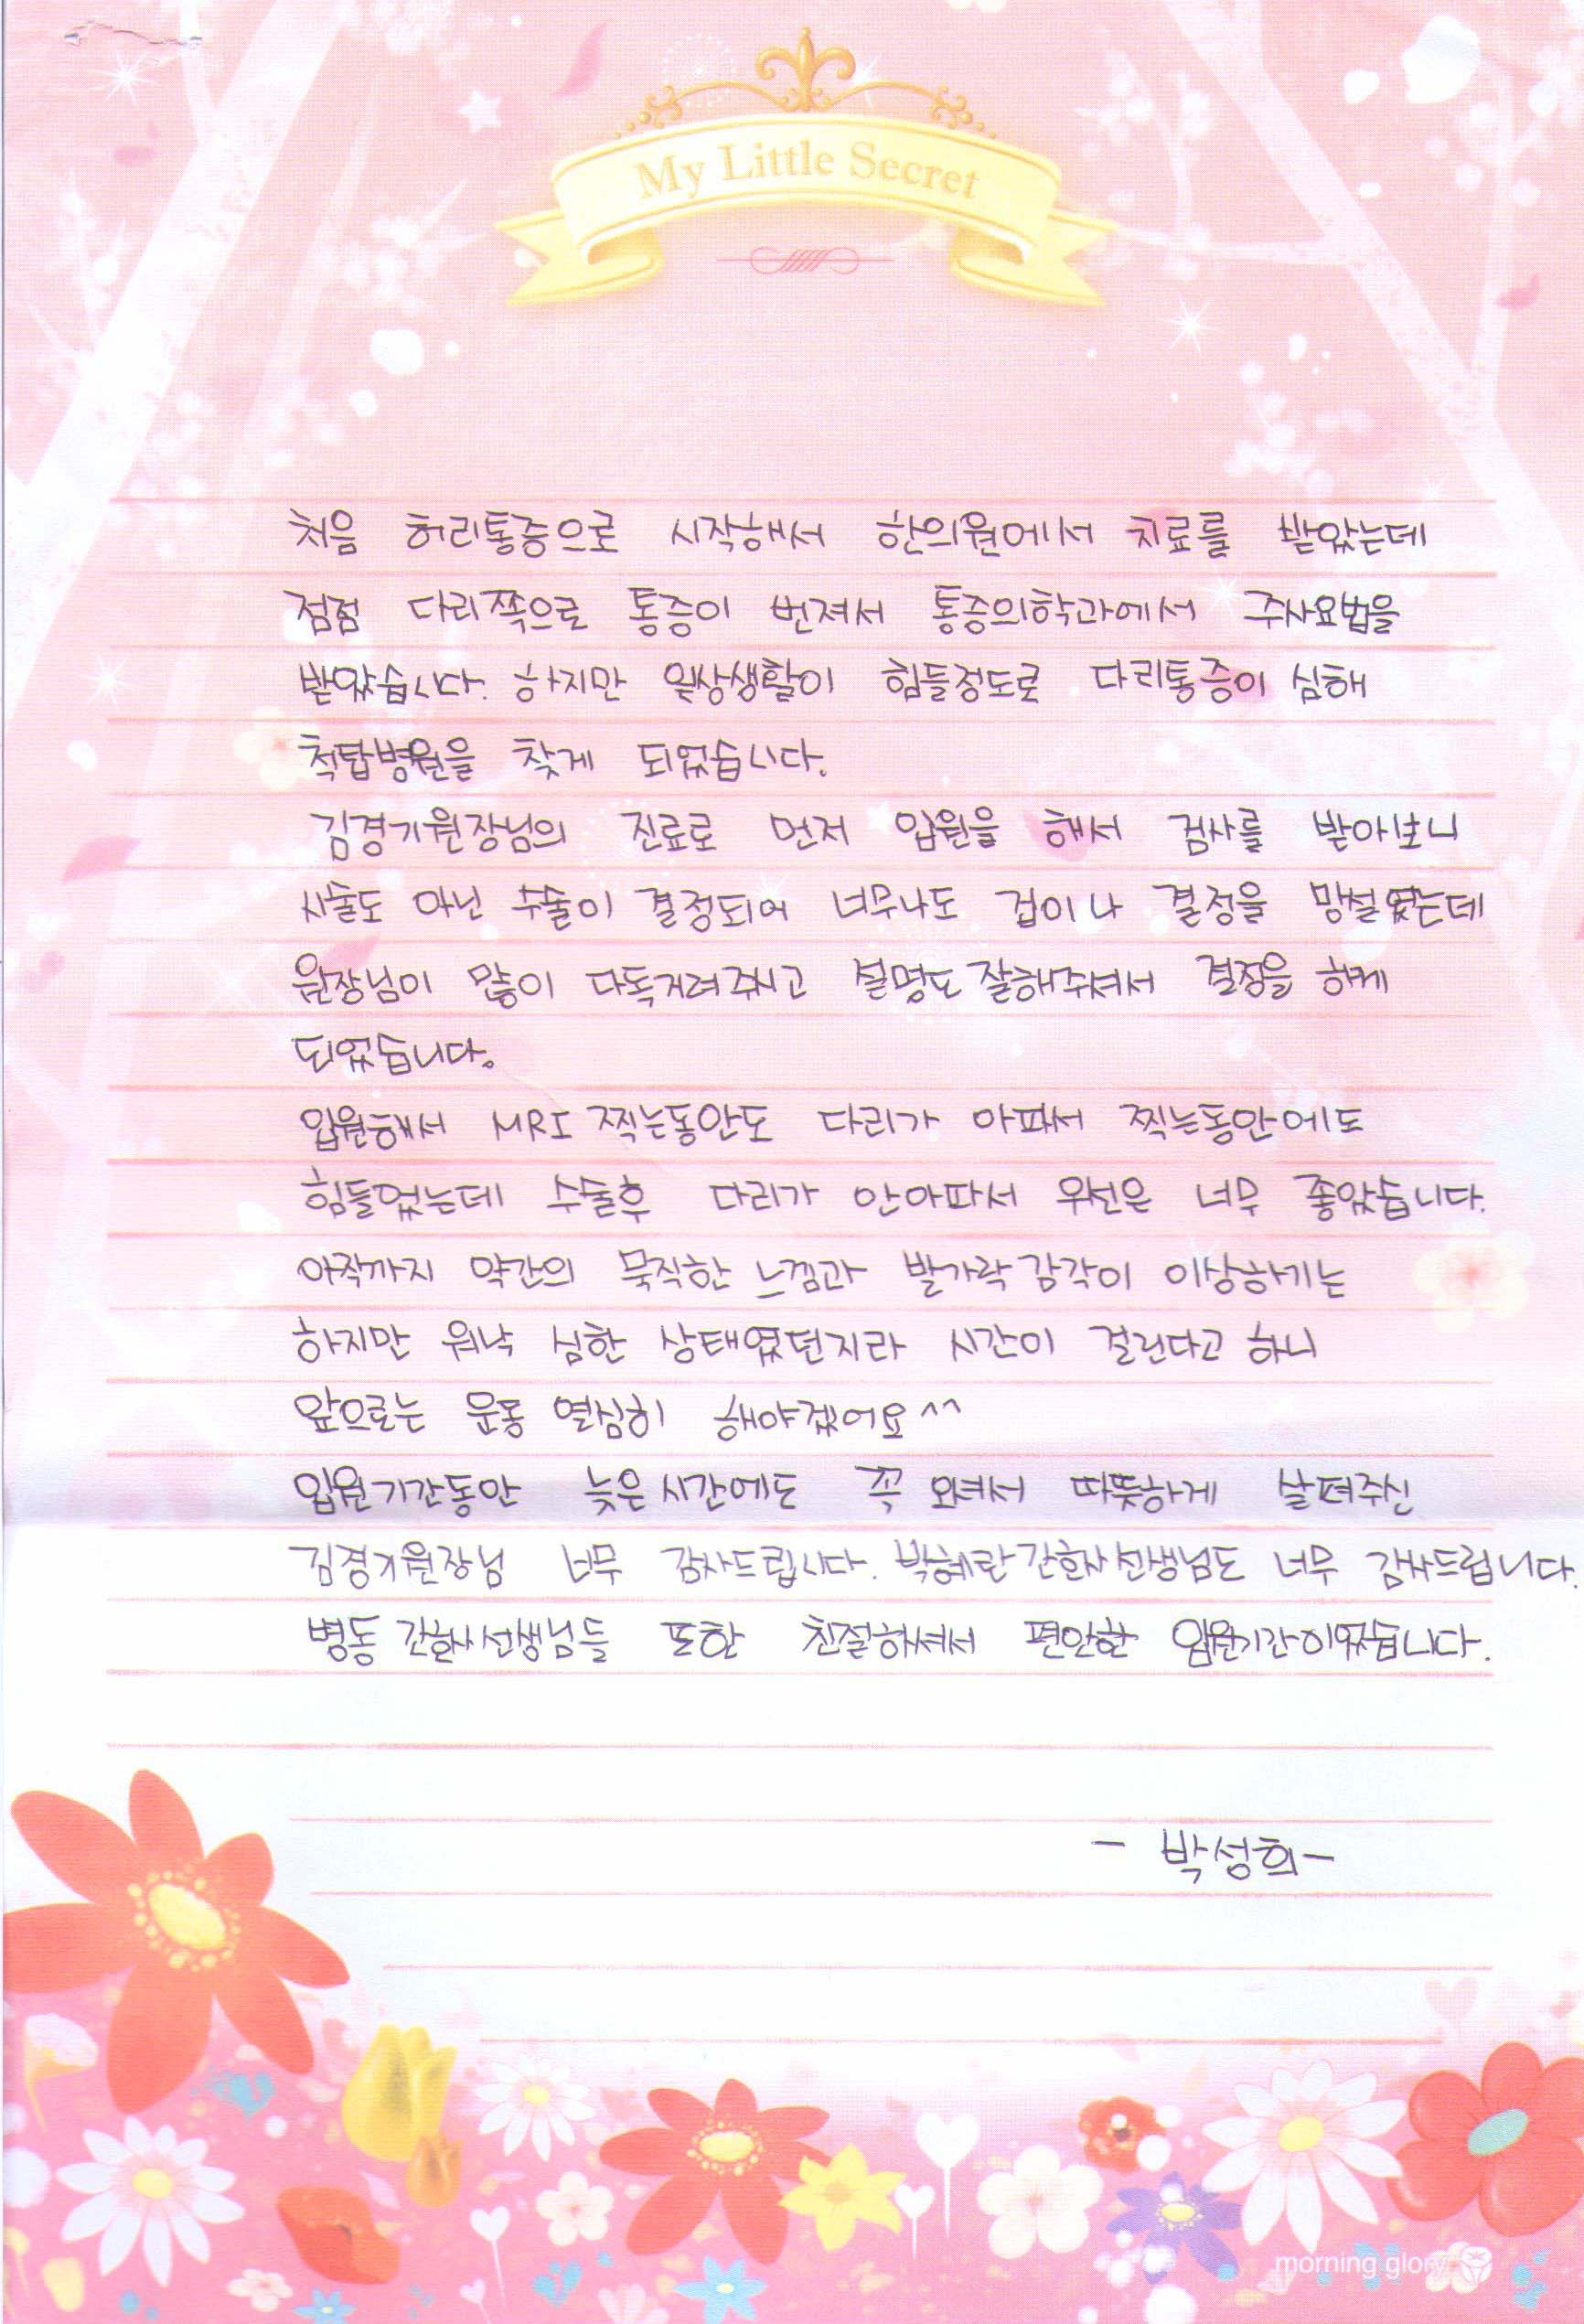 My Little Secret
처음 허리통증으로 시작해서 한의원에서 치료를 받았는데
점점 다리쪽으로 통증이 번져서 통증의학과에서 주사요법을
받았습니다. 하지만 일상생활이 힘들정도로 다리통증이 심해
척탑병원을 찾게 되었습니다.
김경기원장님의 진료로 먼저 입원을 해서 검사를 받아보니
시술도 아닌 수술이 결정되어 너무나도 겁이나 결정을 망설였는데
원장님이 많이 다독거려주시고 설명도 잘해주셔서 결정을 하게
되었습니다.
입원해서 MRI 찍는동안도 다리가 아파서 찍는동안에도
힘들었는데 수술후 다리가 안아파서 우선은 너무 좋았습니다.
아작까지 약간의 묵직한 느낌과 발가락 감각이 이상하기는
하지만 워낙 심한 상태였던지라 시간이 걸린다고 하니
앞으로는 운동 열심히 해야겠어요^^
입원기간동안 늦은 시간에도 꼭 오셔서 따뜻하게 살펴주신
김경기원장님 너무 감사드립니다. 박혜란간호사선생님도 너무 감사드립니다.
병동 간호사선생님들 또한 친절해셔서 편안한 입원기간이었습니다.
- 박성희-
morning glory